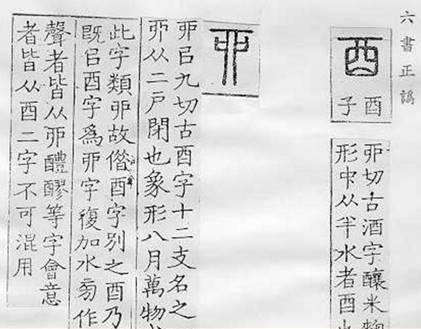 六書正譌
酉
酉子
丣切古酒字釀米
形中从半水者酉
丣
丣㠯九切古酉字十二支名之
丣从二戶閉也象形八月萬物
此字類丣故借酉字別之酉乃
既㠯酉字爲丣字復加水旁作
聲者皆从丣醴醪等字會意
者皆从酉二字不可混用